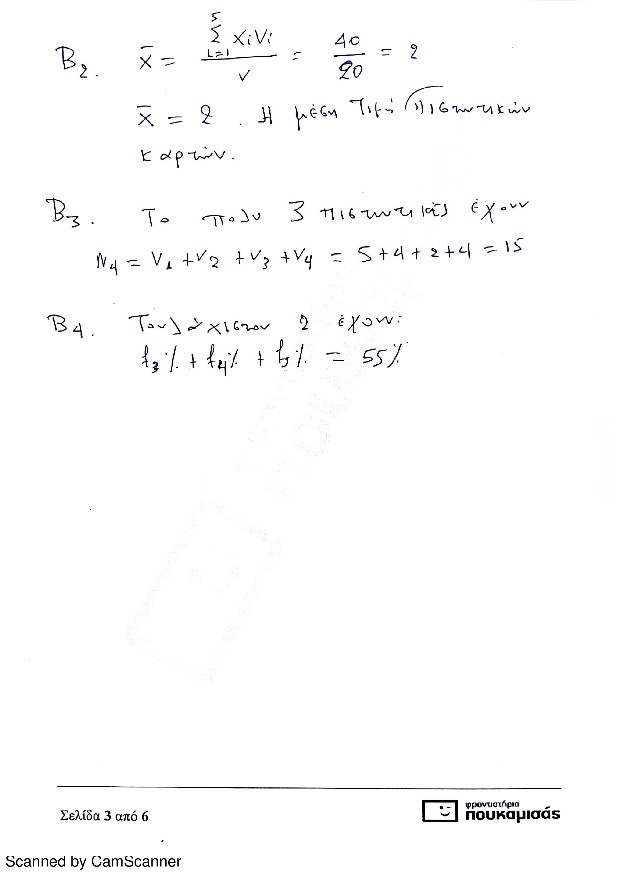 Β2. x̄ = Σ⁵ᵢ₌₁ xᵢvᵢ / v = 40/20 = 2
x̄ = 2. Η μέση τιμή πιστωτικών
καρτών.
Β3. Το πολυ 3 πιστωτικές έχουν
N₄ = v₁ + v₂ + v₃ + v₄ = 5 + 4 + 2 + 4 = 15
Β4. Τουλάχιστον 2 έχουν:
f₃% + f₄% + f₅% = 55%
Σελίδα 3 από 6
φροντιστήρια
πουκαμισάς
Scanned by CamScanner